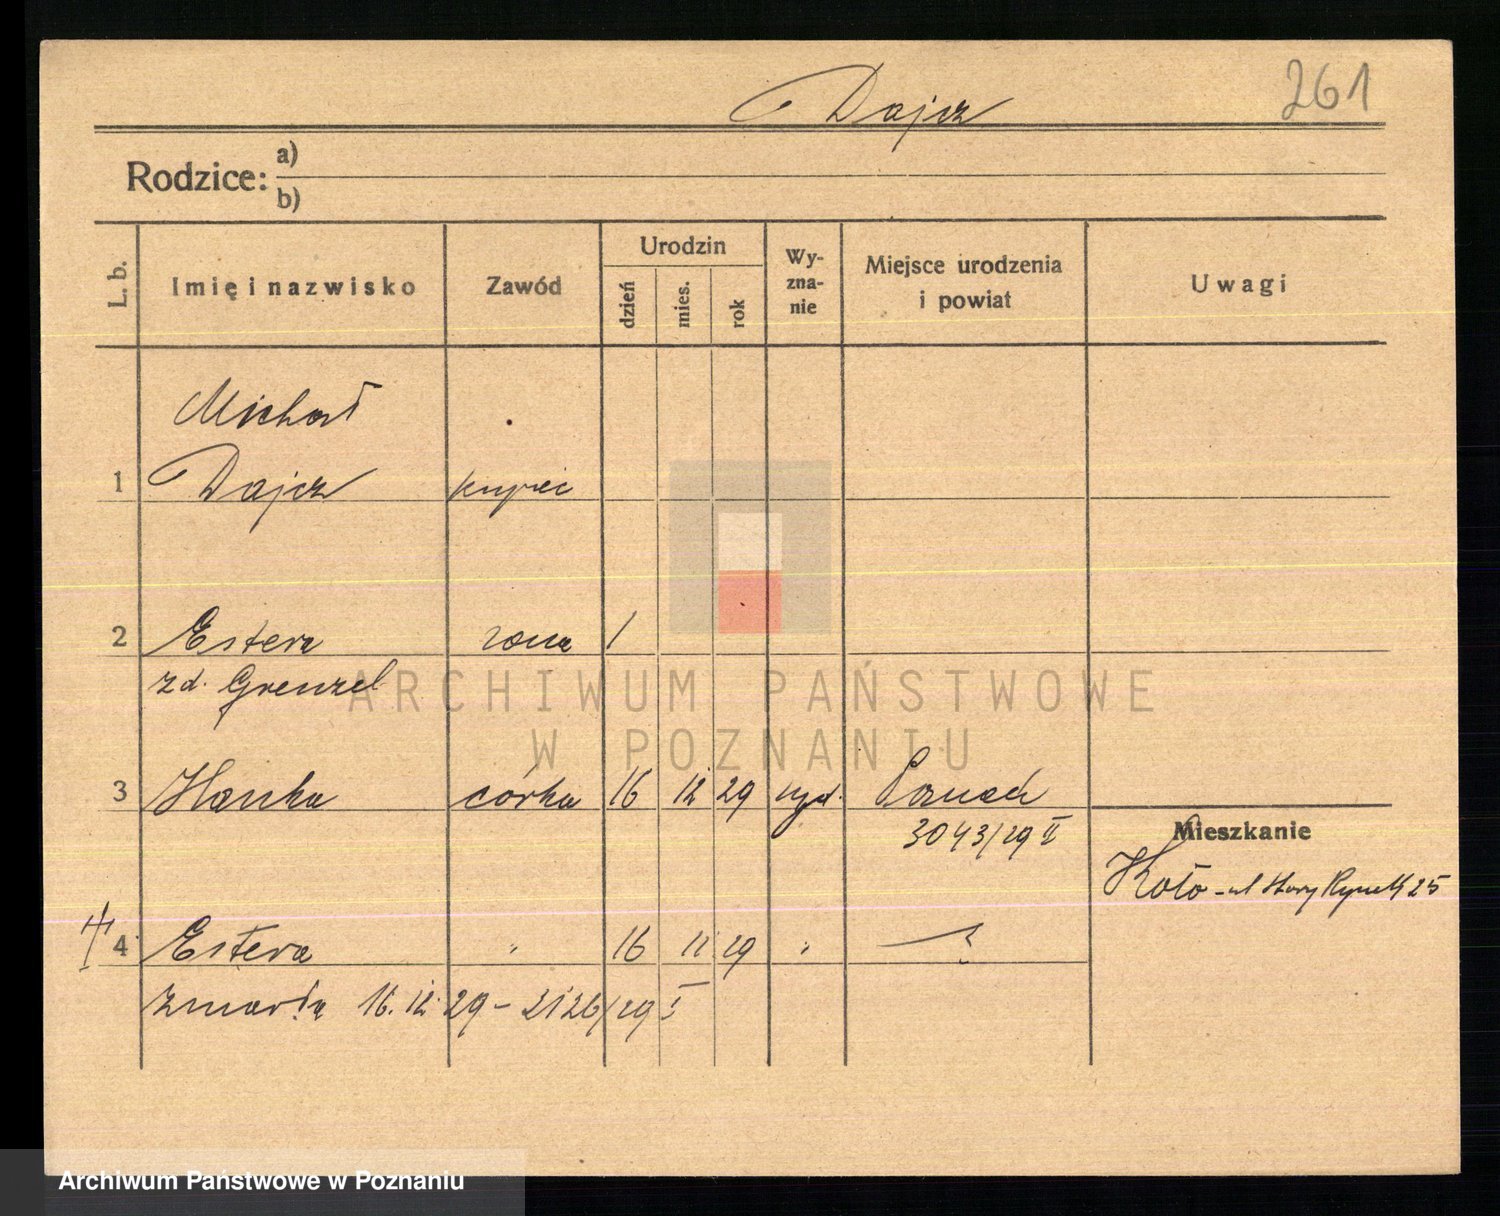 261
Dajcz
Rodzice: a)
b)
L. b. Imię i nazwisko Zawód Urodzin dzień mies. rok Wyznanie Miejsce urodzenia i powiat Uwagi
Michał
1 Dajcz kupiec
2 Estera żona 1
zd. Grenzel
ARCHIWUM PAŃSTWOWE
W POZNANIU
3 Hanka córka 16 12 29 Poznań
3043/29 II
Mieszkanie
Koło - ul Stary Rynek 25
4 Estera " 16 29 "
zmarła 16. 12. 29 - 2126/29 I
Archiwum Państwowe w Poznaniu